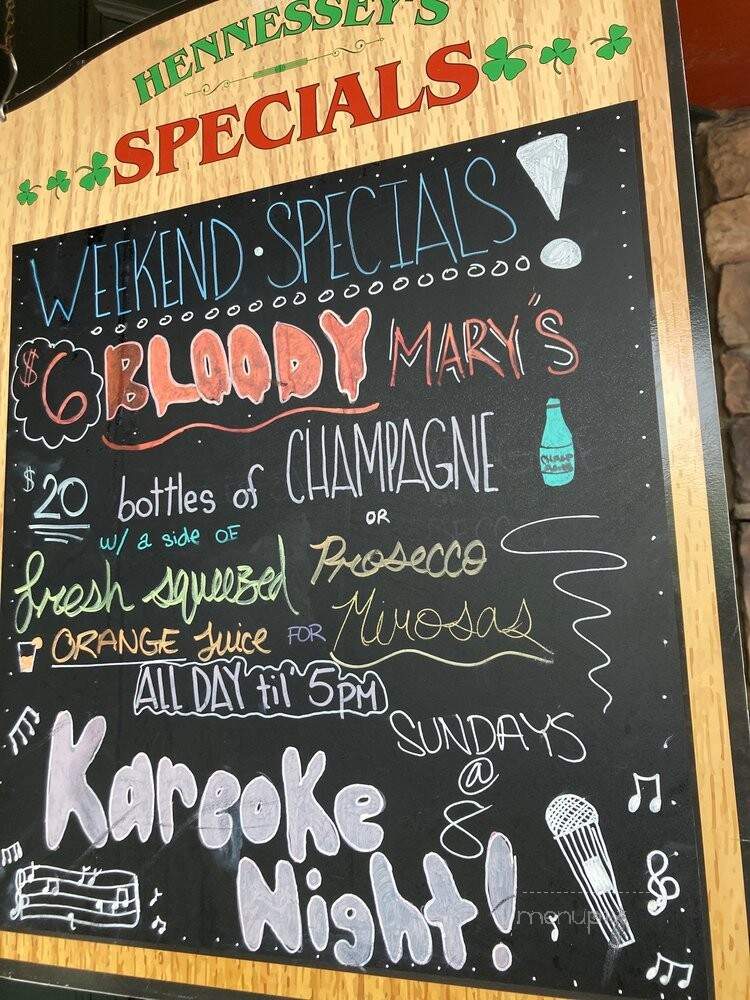 HENNESSEY'S
SPECIALS
WEEKEND • SPECIALS!
$6 BLOODY MARY"S
$20 bottles of CHAMPAGNE
OR
w/ a side of Prosecco
fresh squeezed
ORANGE Juice FOR Mimosas
ALL DAY til' 5PM
SUNDAYS
@
8
Kareoke
Night!
menupix